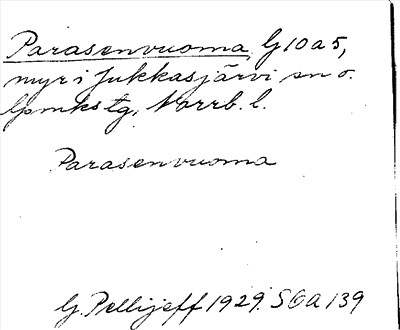 Parasenvuoma G10a5,
myr i Jukkasjärvi sn o.
lpmkstg, Norrb. l.
Parasenvuoma
G. Pellijeff 1929. SOa 139